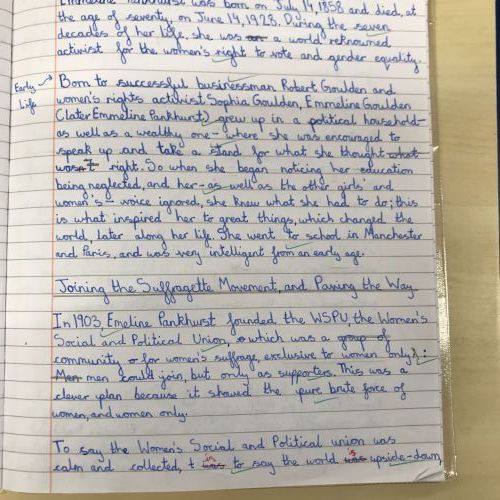 Emmeline Pankhurst was born on July 14, 1858 and died, at
the age of seventy, on June 14, 1928. During the seven
decades of her life, she was a world reknowned
activist for the women's right to vote and gender equality.
Early Life → Born to successful businessman Robert Goulden and
women's rights activist Sophia Goulden, Emmeline Goulden
(later Emmeline Pankhurst) grew up in a political household-
as well as a wealthy one- where she was encouraged to
speak up and take a stand for what she thought what
wasn't right. So when she began noticing her education
being neglected, and her- as well as the other girls' and
women's - voice ignored, she knew what she had to do; this
is what inspired her to great things, which changed the
world, later along her life. She went to school in Manchester
and Paris, and was very intelligent from an early age.
Joining the Suffragette Movement, and Paving the Way
In 1903, Emeline Pankhurst founded the WSPU, the Women's
Social and Political Union, which was a group of
community for women's suffrage, exclusive to women only:
Men men could join, but only as supporters. This was a
clever plan because it showed the pure brute force of
women, and women only.
To say the Women's Social and Political union was
calm and collected, was in to say the world was is upside-down,